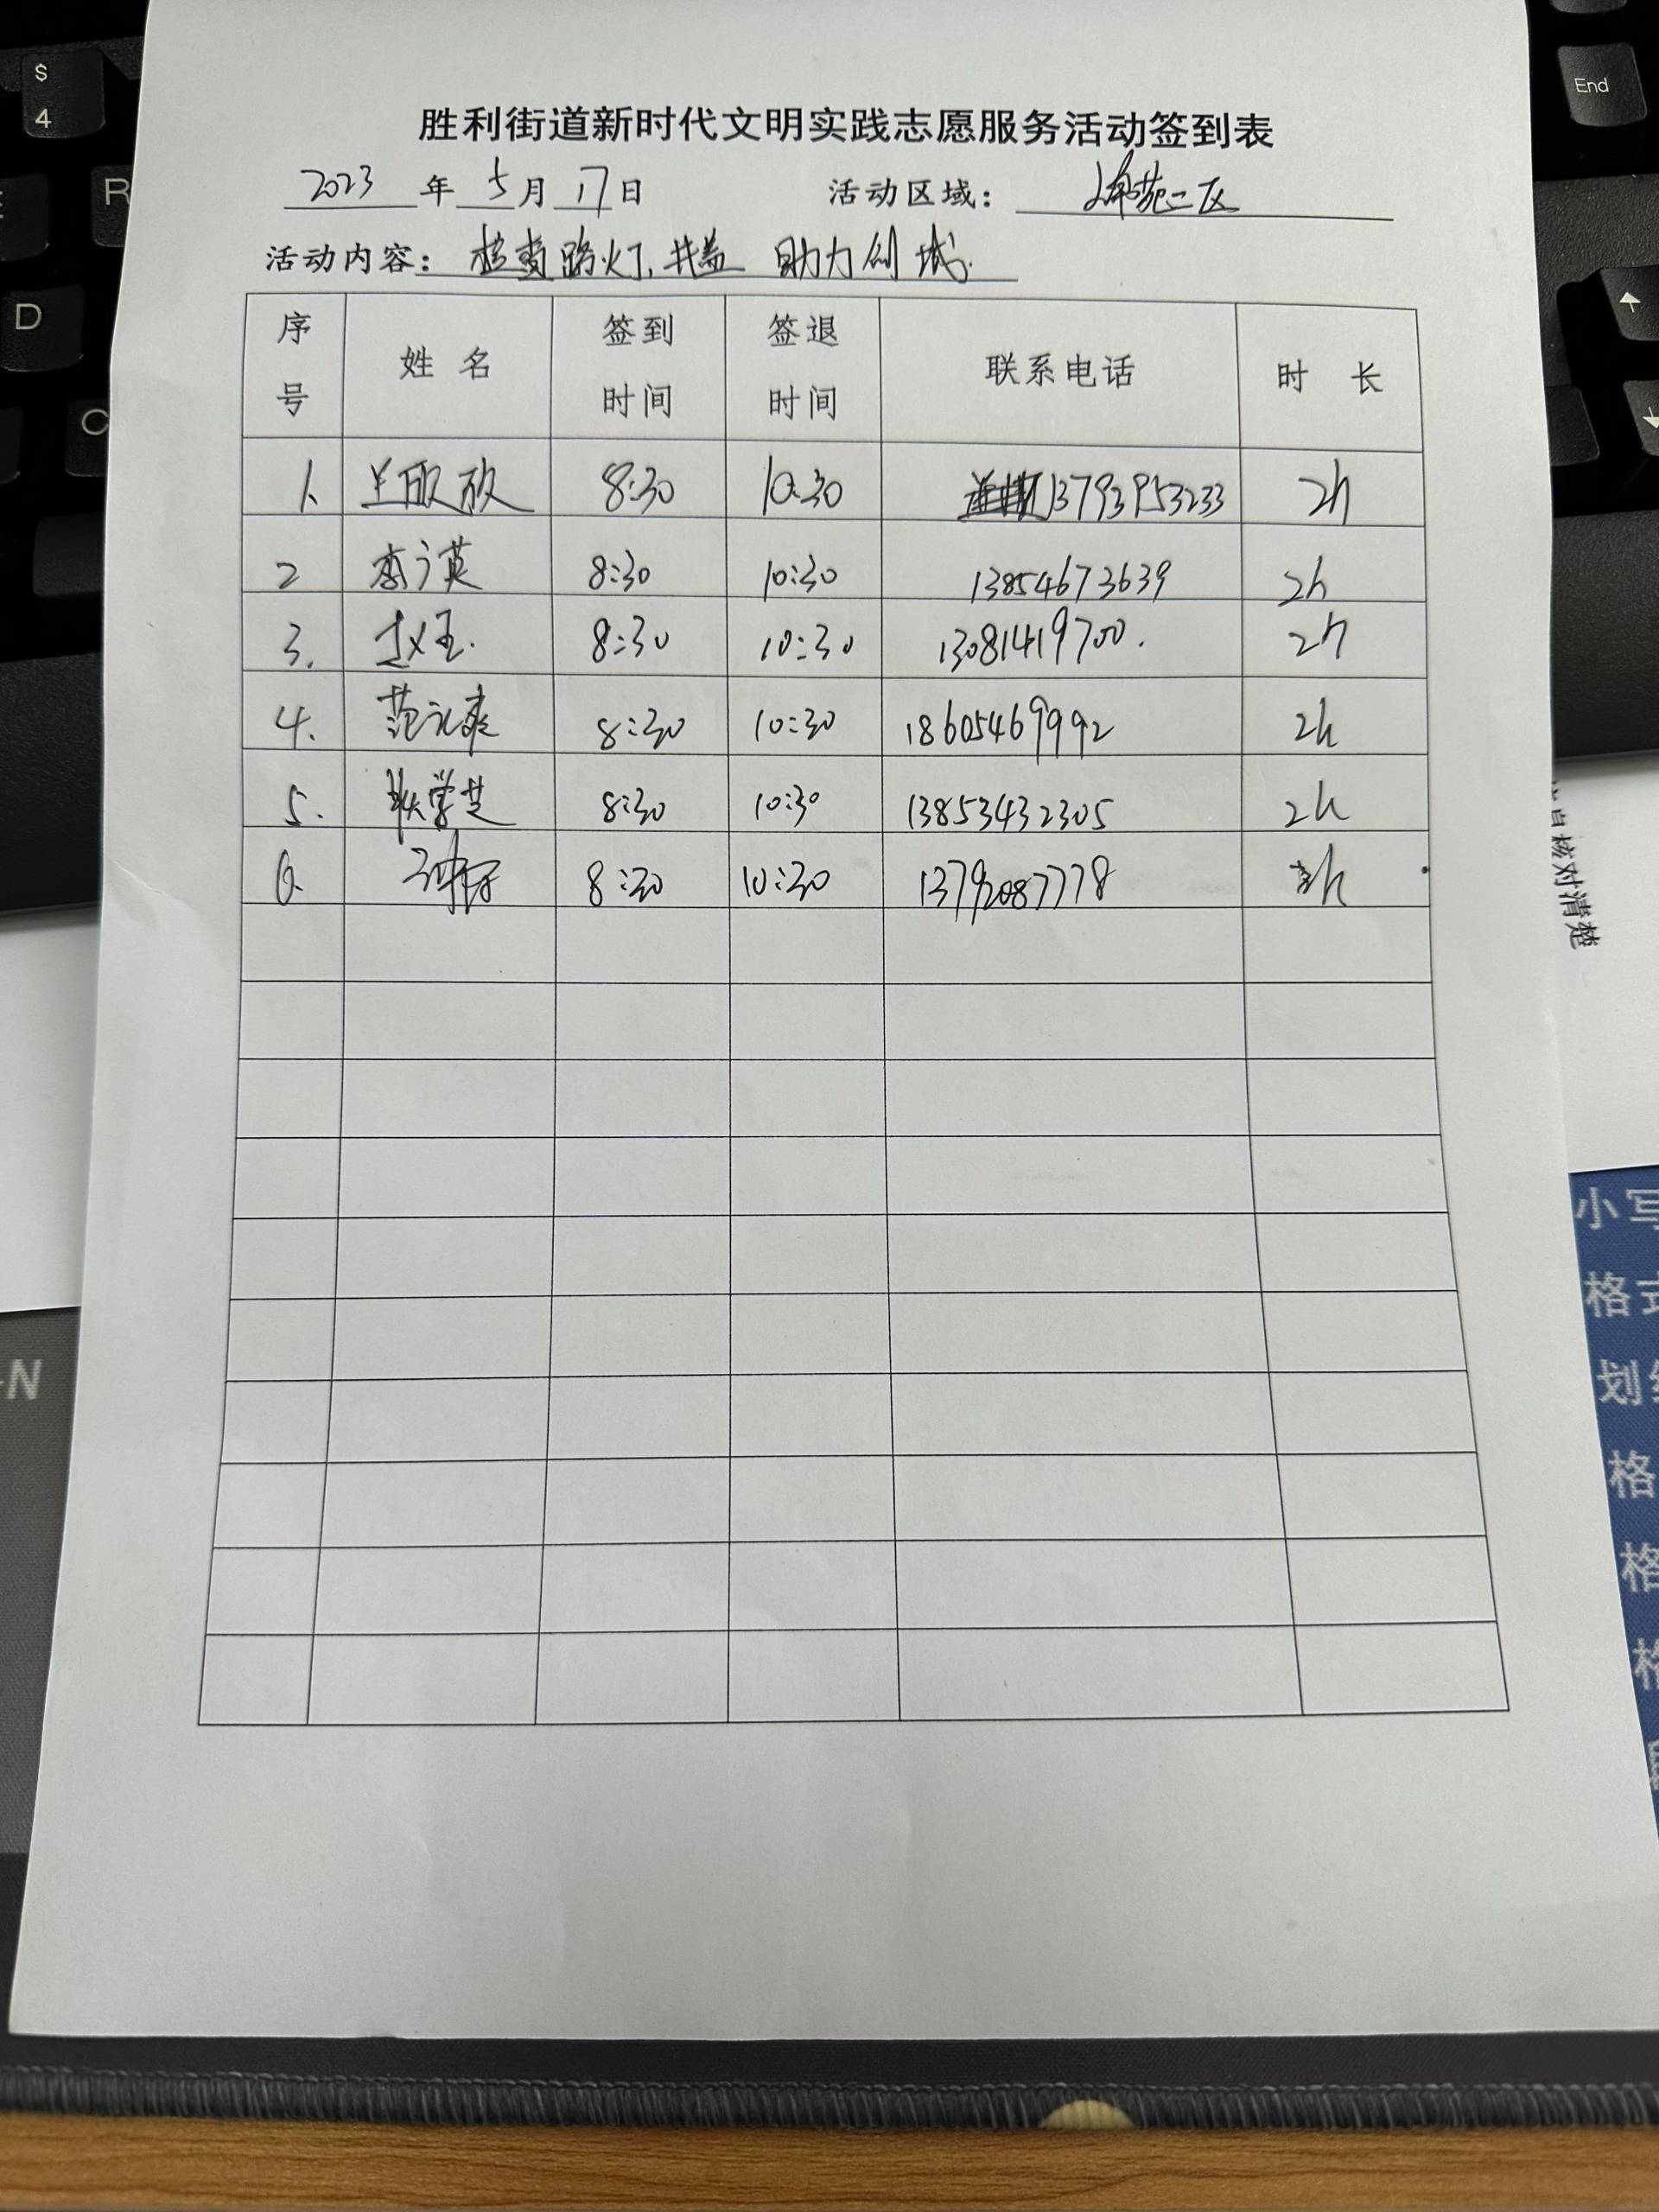 胜利街道新时代文明实践志愿服务活动签到表
2023 年 5 月 17 日 活动区域： 苑二区
活动内容： 检查路灯、井盖 助力创城.
序号 姓名 签到时间 签退时间 联系电话 时长
1、 8:30 10:30 13793953233 2h
2 李广英 8:30 10:30 13854673639 2h
3. 赵玉. 8:30 10:30 13081419700. 2h
4. 范元爽 8:30 10:30 18605469992 2h
5. 学芝 8:30 10:30 13853432305 2h
6. 8:30 10:30 13792087778 h
核对清楚
小写
格式
划
格
格
$
4
R
D
C
End
N